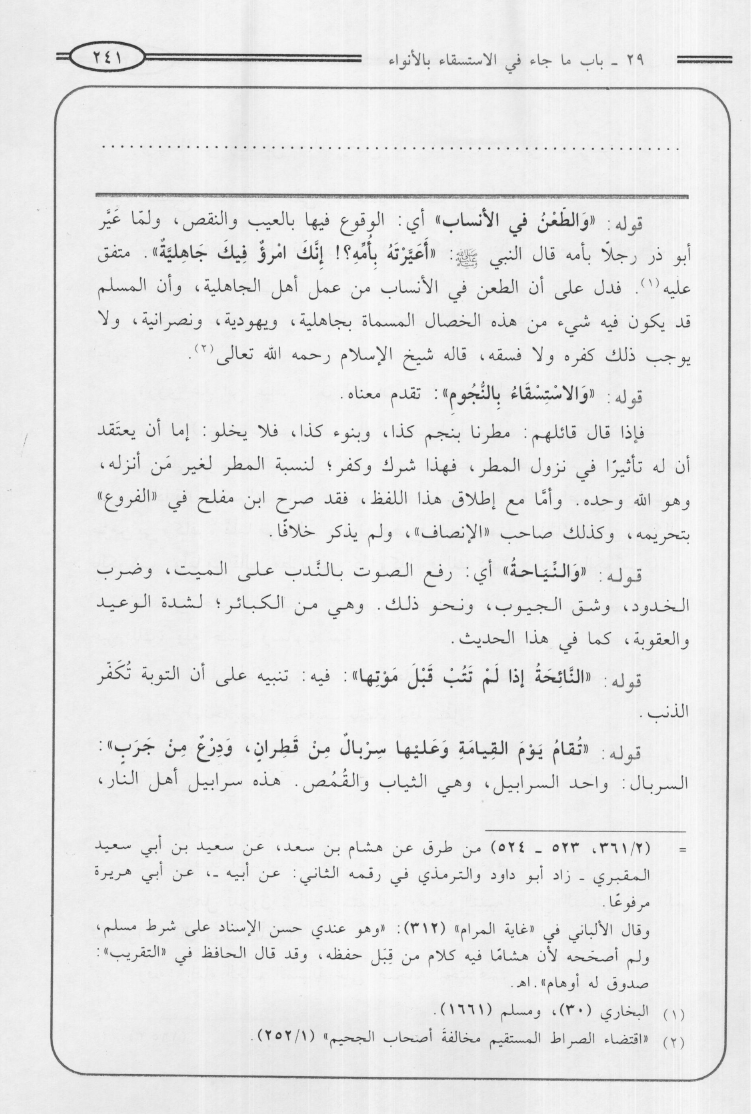 ٢٩ ـ باب ما جاء في الاستسقاء بالأنواء
٢٤١
................................................................
قوله: «وَالطَّعْنُ في الأنساب» أي: الوقوع فيها بالعيب والنقص، ولمّا عَيَّر
أبو ذر رجلًا بأمه قال النبي ﷺ: «أَعَيَّرْتَهُ بِأُمِّهِ؟! إنَّكَ امْرؤٌ فِيكَ جَاهِليَّةٌ». متفق
عليه(١). فدل على أن الطعن في الأنساب من عمل أهل الجاهلية، وأن المسلم
قد يكون فيه شيء من هذه الخصال المسماة بجاهلية، ويهودية، ونصرانية، ولا
يوجب ذلك كفره ولا فسقه، قاله شيخ الإسلام رحمه الله تعالى(٢).
قوله: «وَالاسْتِسْقَاءُ بِالنُّجُومِ»: تقدم معناه.
فإذا قال قائلهم: مطرنا بنجم كذا، وبنوء كذا، فلا يخلو: إما أن يعتَقد
أن له تأثيرًا في نزول المطر، فهذا شرك وكفر؛ لنسبة المطر لغير مَن أنزله،
وهو الله وحده. وأمَّا مع إطلاق هذا اللفظ، فقد صرح ابن مفلح في «الفروع»
بتحريمه، وكذلك صاحب «الإنصاف»، ولم يذكر خلافًا.
قوله: «وَالنِّيَاحةُ» أي: رفع الصوت بالنَّدب على الميت، وضرب
الخدود، وشق الجيوب، ونحو ذلك. وهي من الكبائر؛ لشدة الوعيد
والعقوبة، كما في هذا الحديث.
قوله: «النَّائِحَةُ إذا لَمْ تَتُبْ قَبْلَ مَوْتِها»: فيه: تنبيه على أن التوبة تُكَفّر
الذنب.
قوله: «تُقامُ يَوْمَ القِيامَةِ وَعَليْها سِرْبالٌ مِنْ قَطِرانٍ، وَدِرْعٌ مِنْ جَرَبٍ»:
السربال: واحد السرابيل، وهي الثياب والقُمُص. هذه سرابيل أهل النار،
= (٣٦١/٢، ٥٢٣ ـ ٥٢٤) من طرق عن هشام بن سعد، عن سعيد بن أبي سعيد
المقبري ـ زاد أبو داود والترمذي في رقمه الثاني: عن أبيه ـ، عن أبي هريرة
مرفوعًا.
وقال الألباني في «غاية المرام» (٣١٢): «وهو عندي حسن الإسناد على شرط مسلم،
ولم أصحّحه لأن هشامًا فيه كلام من قِبَل حفظه، وقد قال الحافظ في «التقريب»:
صدوق له أوهام».اهـ.
(١) البخاري (٣٠)، ومسلم (١٦٦١).
(٢) «اقتضاء الصراط المستقيم مخالفةَ أصحاب الجحيم» (٢٥٢/١).